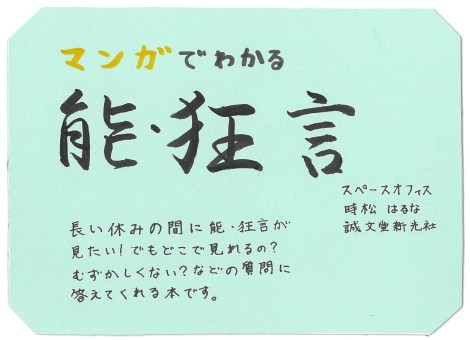 マンガでわかる
能・狂言
スペースオフィス
時松 はるな
誠文堂新光社
長い休みの間に能・狂言が
見たい!でもどこで見れるの?
むずかしくない?などの質問に
答えてくれる本です。